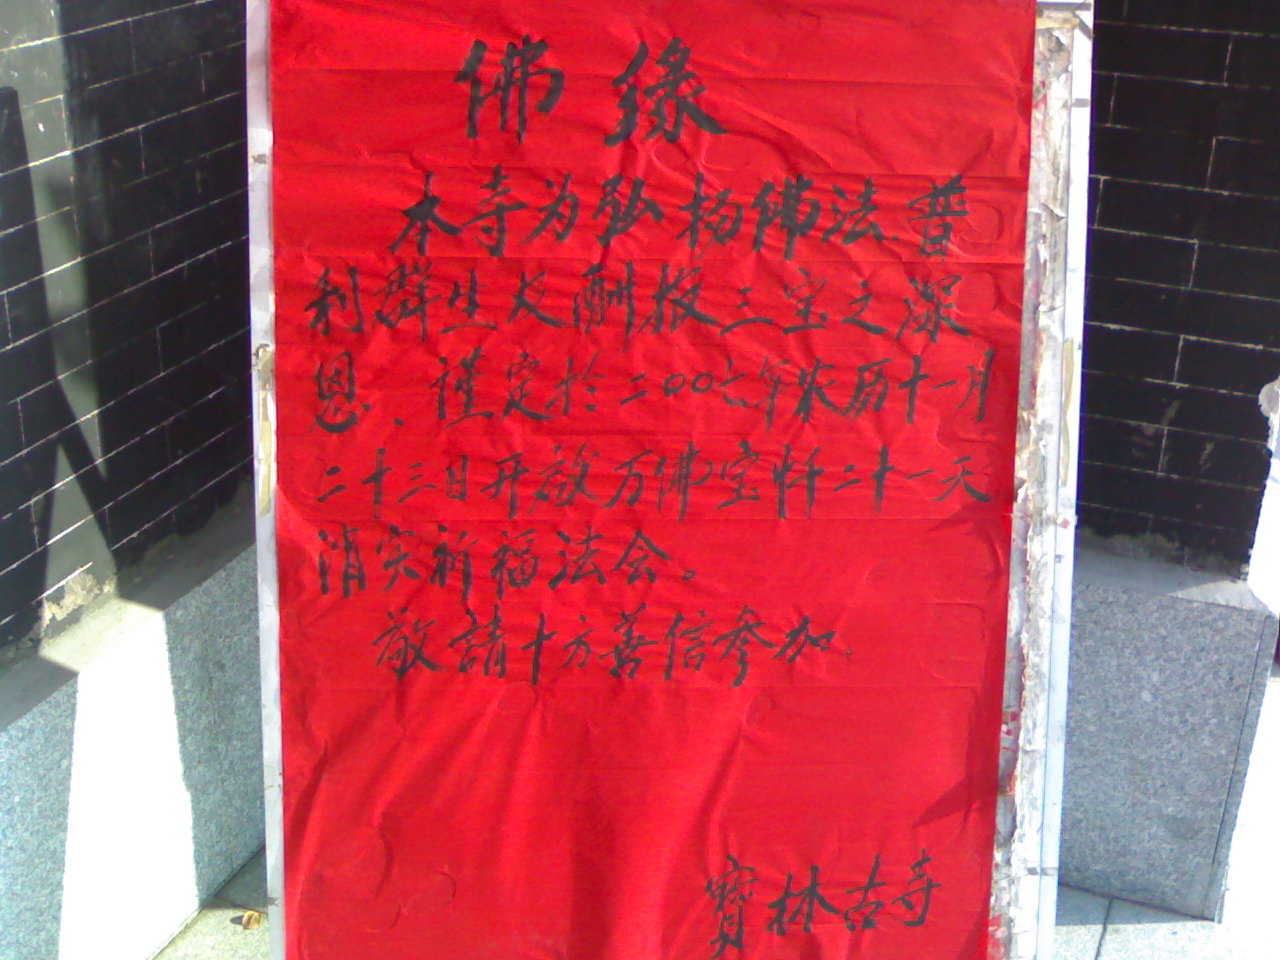 佛缘
本寺为弘扬佛法普
利群生及酬报三宝之深
恩、谨定於二00六年农历十一月
二十三日开放万佛宝忏二十一天
消灾祈福法会。
敬請十方善信参加
寶林古寺